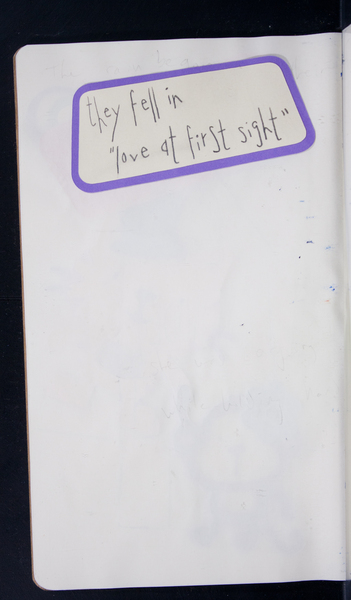 they fell in
"love at first sight"